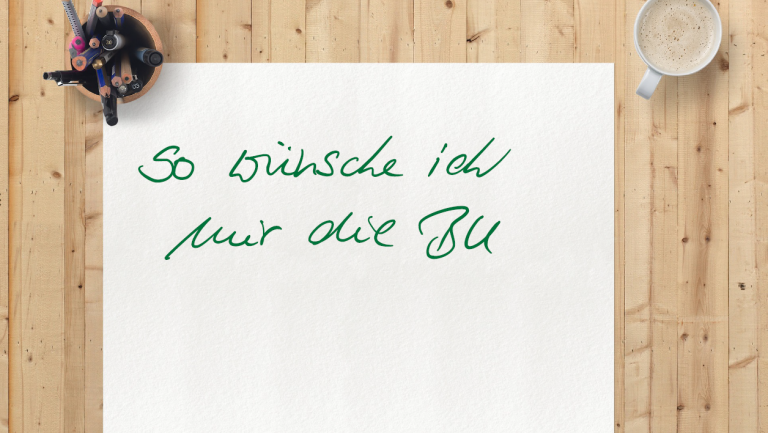 So wünsche ich
mir die BU